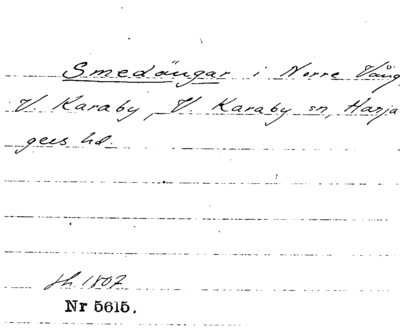 Smedängar i Norre Vång
V. Karaby, V. Karaby sn, Harja
gers hd.
sk. 1807
Nr 5615.